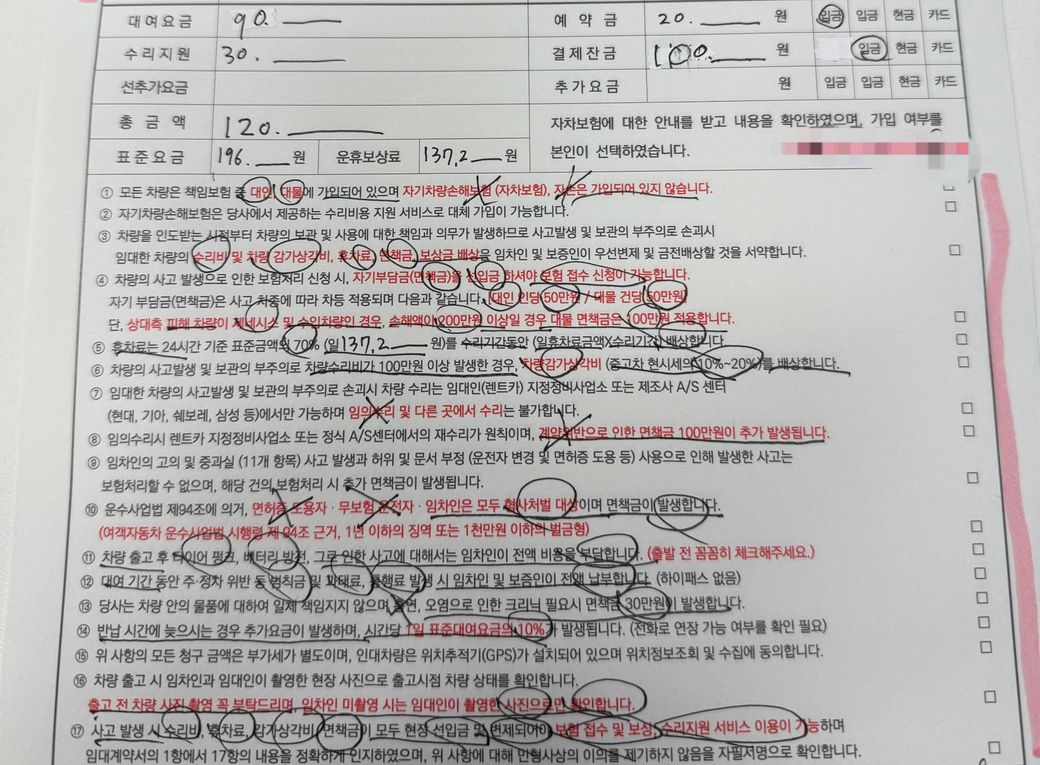 대여요금 90. 예 약 금 20. 원 입금 입금 현금 카드
수리지원 30. 결제잔금 100. 원 입금 현금 카드
선추가요금 추가요금 원 입금 입금 현금 카드
총 금 액 120. 자차보험에 대한 안내를 받고 내용을 확인하였으며, 가입 여부를
표준요금 196. 원 운휴보상료 137,2 원 본인이 선택하였습니다.
① 모든 차량은 책임보험 중 대인, 대물에 가입되어 있으며 자기차량손해보험 (자차보험), 자손은 가입되어 있지 않습니다.
② 자기차량손해보험은 당사에서 제공하는 수리비용 지원 서비스로 대체 가입이 가능합니다.
③ 차량을 인도받는 시점부터 차량의 보관 및 사용에 대한 책임과 의무가 발생하므로 사고발생 및 보관의 부주의로 손괴시
임대한 차량의 수리비 및 차량 감가상각비, 휴차료, 면책금, 보상금 배상을 임차인 및 보증인이 우선변제 및 금전배상할 것을 서약합니다.
④ 차량의 사고 발생으로 인한 보험처리 신청 시, 자기부담금(면책금)을 선입금 하셔야 보험 접수 신청이 가능합니다.
자기 부담금(면책금)은 사고 차종에 따라 차등 적용되며 다음과 같습니다. (대인 인당 50만원 / 대물 건당 50만원)
단, 상대측 피해 차량이 제네시스 및 수입차량인 경우, 손해액이 200만원 이상일 경우 대물 면책금은 100만원 적용합니다.
⑤ 휴차료는 24시간 기준 표준금액의 70% (일 137,2 원)를 수리기간동안 (일휴차료금액X수리기간) 배상합니다
⑥ 차량의 사고발생 및 보관의 부주의로 차량수리비가 100만원 이상 발생한 경우, 차량감가상각비 (중고차 현시세의 10%~20%)를 배상합니다.
⑦ 임대한 차량의 사고발생 및 보관의 부주의로 손괴시 차량 수리는 임대인(렌트카) 지정정비사업소 또는 제조사 A/S 센터
(현대, 기아, 쉐보레, 삼성 등)에서만 가능하며 임의수리 및 다른 곳에서 수리는 불가합니다.
⑧ 임의수리시 렌트카 지정정비사업소 또는 정식 A/S센터에서의 재수리가 원칙이며, 계약위반으로 인한 면책금 100만원이 추가 발생됩니다.
⑨ 임차인의 고의 및 중과실 (11개 항목) 사고 발생과 허위 및 문서 부정 (운전자 변경 및 면허증 도용 등) 사용으로 인해 발생한 사고는
보험처리할 수 없으며, 해당 건의 보험처리 시 추가 면책금이 발생됩니다.
⑩ 운수사업법 제94조에 의거, 면허증 도용자 · 무보험 운전자 · 임차인은 모두 형사처벌 대상이며 면책금이 발생합니다.
(여객자동차 운수사업법 시행령 제 94조 근거, 1년 이하의 징역 또는 1천만원 이하의 벌금형)
⑪ 차량 출고 후 타이어 펑크, 배터리 방전, 그로 인한 사고에 대해서는 임차인이 전액 비용을 부담합니다. (출발 전 꼼꼼히 체크해주세요.)
⑫ 대여 기간 동안 주·정차 위반 등 범칙금 및 과태료, 통행료 발생 시 임차인 및 보증인이 전액 납부합니다. (하이패스 없음)
⑬ 당사는 차량 안의 물품에 대하여 일체 책임지지 않으며, 흡연, 오염으로 인한 크리닉 필요시 면책금 30만원이 발생합니다.
⑭ 반납 시간에 늦으시는 경우 추가요금이 발생하며, 시간당 1일 표준대여요금의 10%가 발생됩니다. (전화로 연장 가능 여부를 확인 필요)
⑮ 위 사항의 모든 청구 금액은 부가세가 별도이며, 임대차량은 위치추적기(GPS)가 설치되어 있으며 위치정보조회 및 수집에 동의합니다.
⑯ 차량 출고 시 임차인과 임대인이 촬영한 현장 사진으로 출고시점 차량 상태를 확인합니다.
출고 전 차량 사진 촬영 꼭 부탁드리며, 임차인 미촬영 시는 임대인이 촬영한 사진으로만 확인합니다.
⑰ 사고 발생 시 수리비, 휴차료, 감가상각비, 면책금은 모두 현장 선입금 및 변제되어야 보험 접수 및 보상, 수리지원 서비스 이용이 가능하며
임대계약서의 1항에서 17항의 내용을 정확하게 인지하였으며, 위 사항에 대해 민형사상의 이의를 제기하지 않음을 자필서명으로 확인합니다.